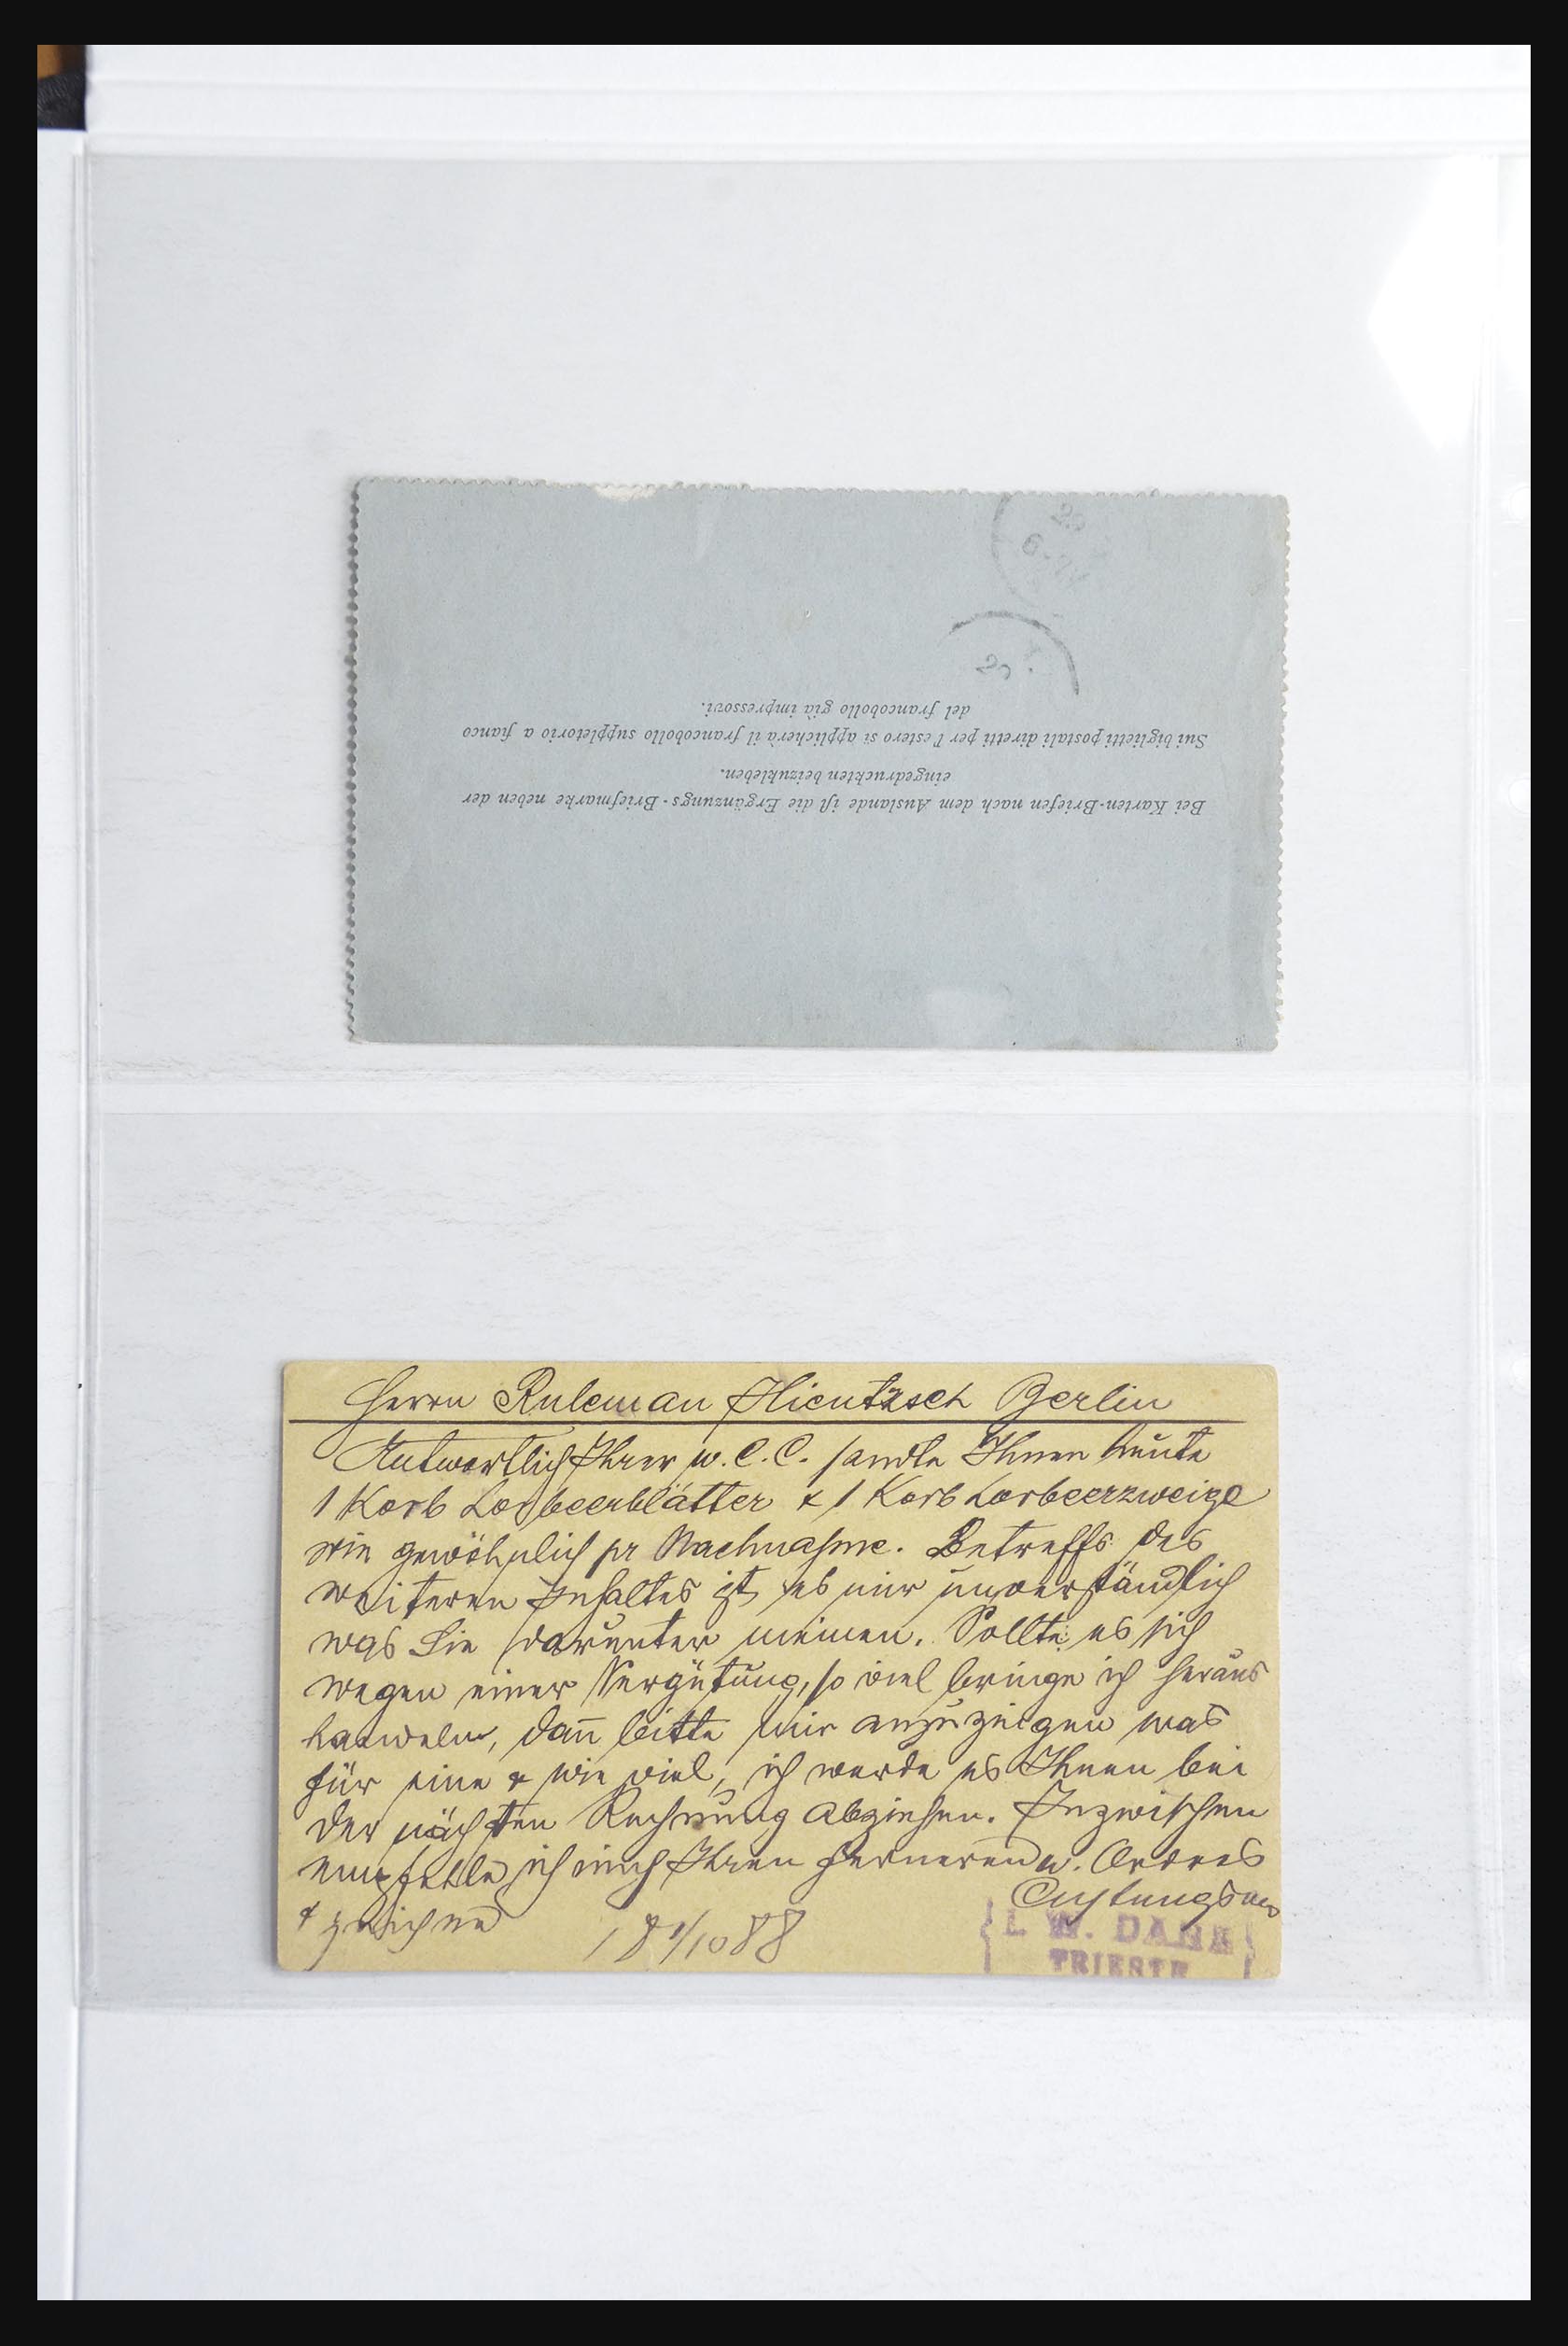 Bei Karten-Briefen nach dem Auslande ist die Ergänzungs-Briefmarke neben der
eingedruckten beizukleben.
Sui biglietti postali diretti per l'estero si applicherà il francobollo suppletorio a fianco
del francobollo già impressovi.
Herrn Ruleman Hientzsch Berlin
Antwortlich Ihrer w. C. C. sandte Ihnen heute
1 Korb Lorbeerblätter & 1 Korb Lorbeerzweige
wie gewöhnlich pr Nachnahme. Betreffs des
weiteren Inhaltes ist es mir unverständlich
was Sie darunter meinen. Sollte es sich
wegen einer Vergütung, so viel bringe ich heraus
handeln, dan̄ bitte mir anzuzeigen was
für eine & wie viel, ich werde es Ihnen bei
der nächsten Rechnung abziehen. Inzwischen
empfehle ich mich Ihren ferneren w. Ordres
& zeichne
Achtungsvoll
1 8/10 88
L. W. DANA
TRIESTE